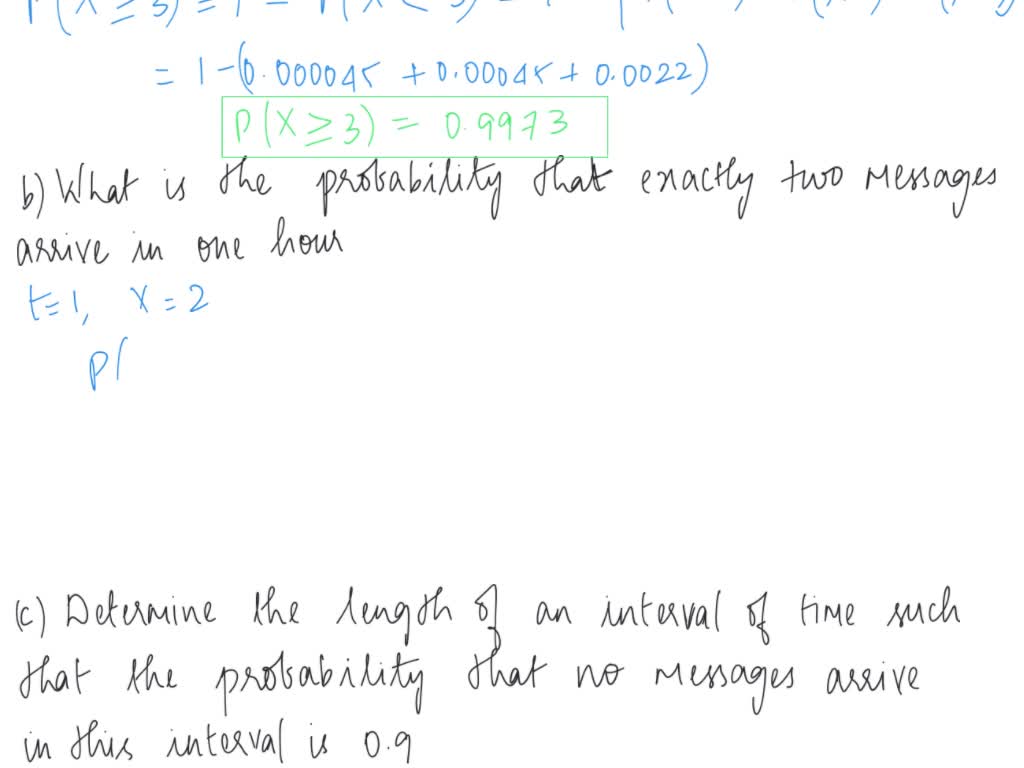 = 1 - (0.000045 + 0.00045 + 0.0022)
P(X ≥ 3) = 0.9973
b) What is the probability that exactly two messages
arrive in one hour
t=1, X = 2
P(
(c) Determine the length of an interval of time such
that the probability that no messages arrive
in this interval is 0.9